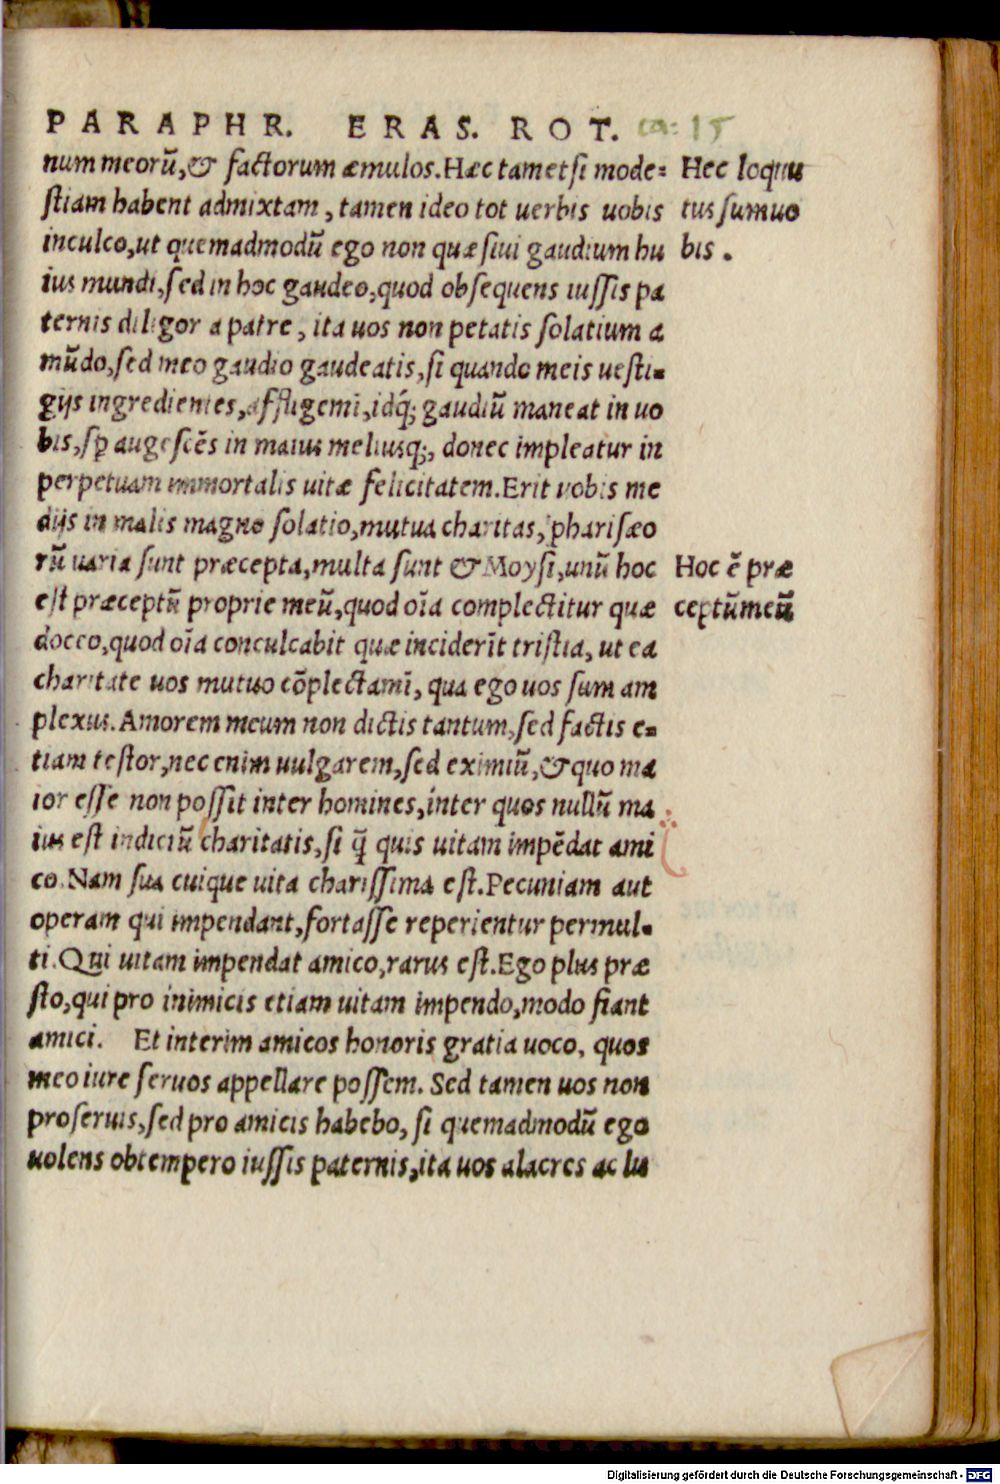 PARAPHR. ERAS. ROT. ca: 15
num meorū, & factorum æmulos. Hæc tametsi mode=
stiam habent admixtam, tamen ideo tot uerbis uobis
inculco, ut quemadmodū ego non quæsiui gaudium hu
ius mundi, sed in hoc gaudeo, quod obsequens iussis pa
ternis diligor a patre, ita uos non petatis solatium a
mūdo, sed meo gaudio gaudeatis, si quando meis uesti-
gijs ingredientes, affligemī, idq́; gaudiū maneat in uo
bis, sꝑ augescēs in maius meliusq;, donec impleatur in
perpetuam immortalis uitæ felicitatem. Erit vobis me
dijs in malis magno solatio, mutua charitas, pharisæo
rū uaria sunt præcepta, multa sunt & Moysi, unū hoc
est præceptū proprie meū, quod oīa complectitur quæ
doceo, quod oīa conculcabit quæ inciderīt tristia, ut ea
charitate uos mutuo cōplectamī, qua ego uos sum am
plexus. Amorem meum non dictis tantum, sed factis e-
tiam testor, nec enim uulgarem, sed eximiū, & quo ma
ior esse non possit inter homines, inter quos nullū ma
ius est indiciū charitatis, si q̄ quis uitam impēdat ami
co. Nam sua cuique uita charissima est. Pecuniam aut
operam qui impendant, fortasse reperientur permul-
ti. Qui uitam impendat amico, rarus est. Ego plus præ
sto, qui pro inimicis etiam uitam impendo, modo fiant
amici. Et interim amicos honoris gratia uoco, quos
meo iure seruos appellare possem. Sed tamen uos non
pro seruis, sed pro amicis habebo, si quemadmodū ego
uolens obtempero iussis paternis, ita uos alacres ac lu
Hec loquu
tus sum uo
bis.
Hoc ē præ
ceptū meū
Digitalisierung gefördert durch die Deutsche Forschungsgemeinschaft - DFG